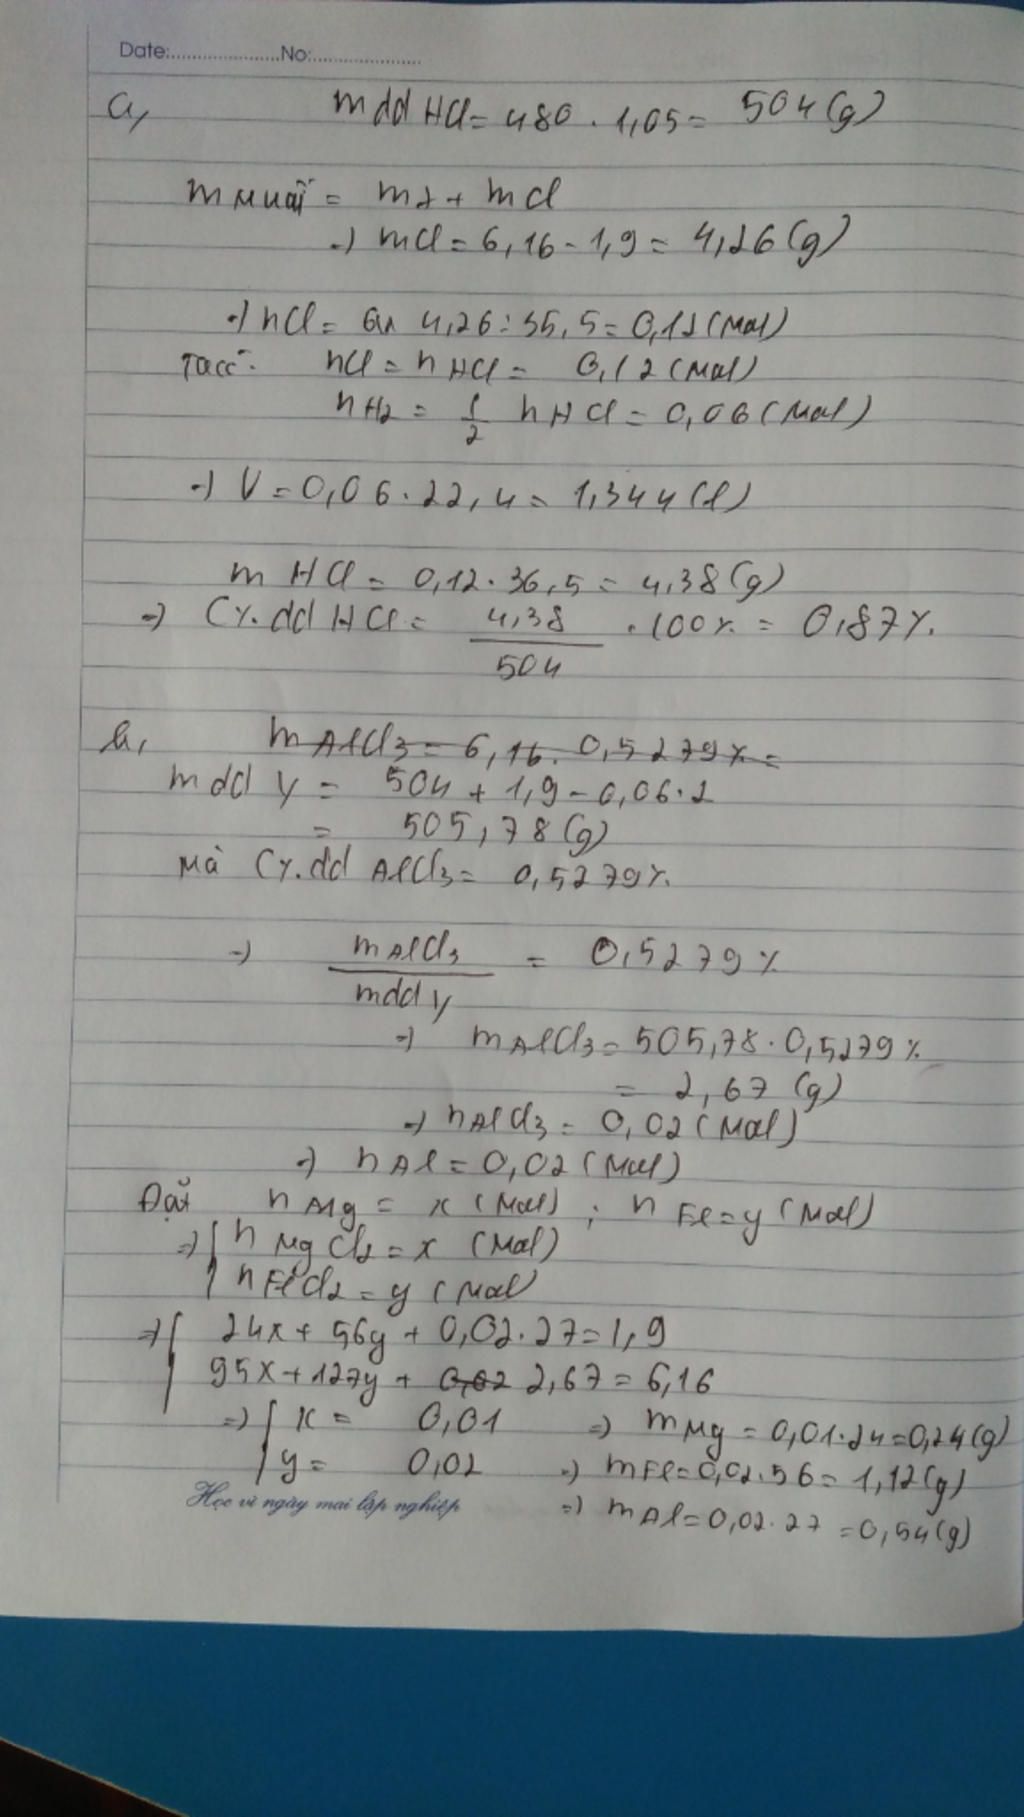 Date:.....................No:.....................
a, mdd HCl = 480 . 1,05 = 504 (g)
m muối = m2 + mCl
=> mCl = 6,16 - 1,9 = 4,26 (g)
=> nCl = 4,26 : 35,5 = 0,12 (mol)
Ta có: nCl = nHCl = 0,12 (mol)
nH2 = 1/2 nHCl = 0,06 (mol)
=> V = 0,06 . 22,4 = 1,344 (l)
m HCl = 0,12 . 36,5 = 4,38 (g)
=> C%.dd HCl = 4,38/504 . 100% = 0,87%.
b, mAlCl3 = 6,16. 0,5279% =
mdd y = 504 + 1,9 - 0,06.2
= 505,78 (g)
Mà C%.dd AlCl3 = 0,5279%.
=> mAlCl3/mdd y = 0,5279%
=> mAlCl3 = 505,78 . 0,5279%
= 2,67 (g)
=> nAlCl3 = 0,02 (mol)
=> nAl = 0,02 (mol)
Đặt nMg = x (mol) ; nFe = y (mol)
=> { nMgCl2 = x (mol)
nFeCl2 = y (mol)
=> { 24x + 56y + 0,02.27 = 1,9
95x + 127y + 0,02 2,67 = 6,16
=> { x = 0,01 => mMg = 0,01.24 = 0,24 (g)
y = 0,02 => mFe = 0,02.56 = 1,12 (g)
Học vì ngày mai lập nghiệp => mAl = 0,02.27 = 0,54 (g)